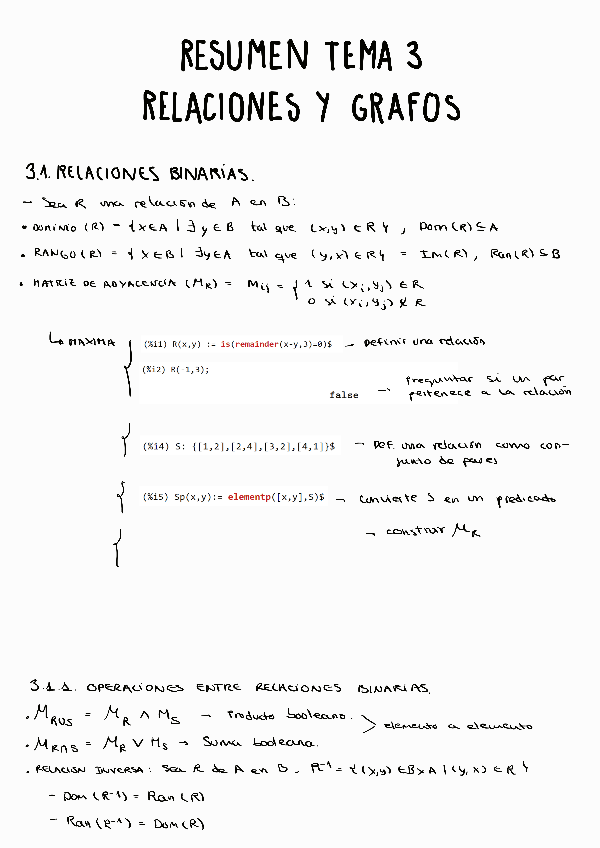 RESUMEN TEMA 3
RELACIONES Y GRAFOS
3.1. RELACIONES BINARIAS.
- Sea R una relación de A en B:
• DOMINIO (R) = {x∈A | ∃y∈B tal que (x,y) ∈ R}, Dom(R)⊆A
• RANGO (R) = {x∈B | ∃y∈A tal que (y,x)∈R} = Im(R), Ran(R)⊆B
• MATRIZ DE ADYACENCIA (M_R) = M_ij = { 1 si (x_i,y_j) ∈ R
0 si (x_i,y_j) ∉ R
↳ MAXIMA { (%i1) R(x,y) := is(remainder(x-y,3)=0)$ → Definir una relación
(%i2) R(-1,3);
false → preguntar si un par
pertenece a la relación
{ (%i4) S: {[1,2],[2,4],[3,2],[4,1]}$ → Def. una relación como con-
junto de pares
{ (%i5) Sp(x,y):= elementp([x,y],S)$ → convierte S en un predicado
{ → construir M_R
3.1.1. OPERACIONES ENTRE RELACIONES BINARIAS.
• M_R∪S = M_R ∧ M_S → Producto booleano. > elemento a elemento
• M_R∩S = M_R ∨ M_S → Suma booleana.
• RELACIÓN INVERSA: Sea R de A en B. R⁻¹ = {(x,y) ∈ B×A | (y,x) ∈ R}
- Dom (R⁻¹) = Ran (R)
- Ran (R⁻¹) = Dom (R)